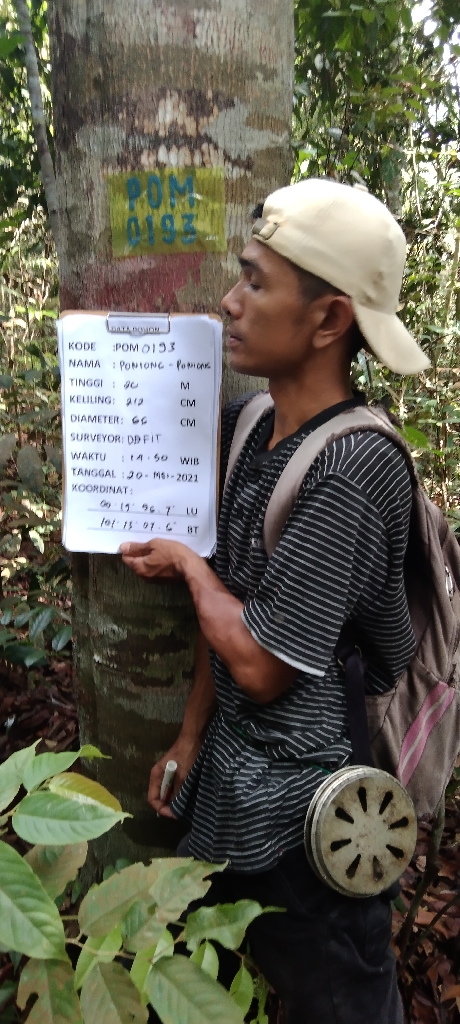 POM
0193
DATA POHON
KODE : POM 0193
NAMA : PONIONG - PONIONG
TINGGI : 20 M
KELILING: 212 CM
DIAMETER: 66 CM
SURVEYOR: DDFIT
WAKTU : 14.50 WIB
TANGGAL : 20 - MEI - 2021
KOORDINAT:
00° 19' 96.7" LU
101° 13' 07.6" BT